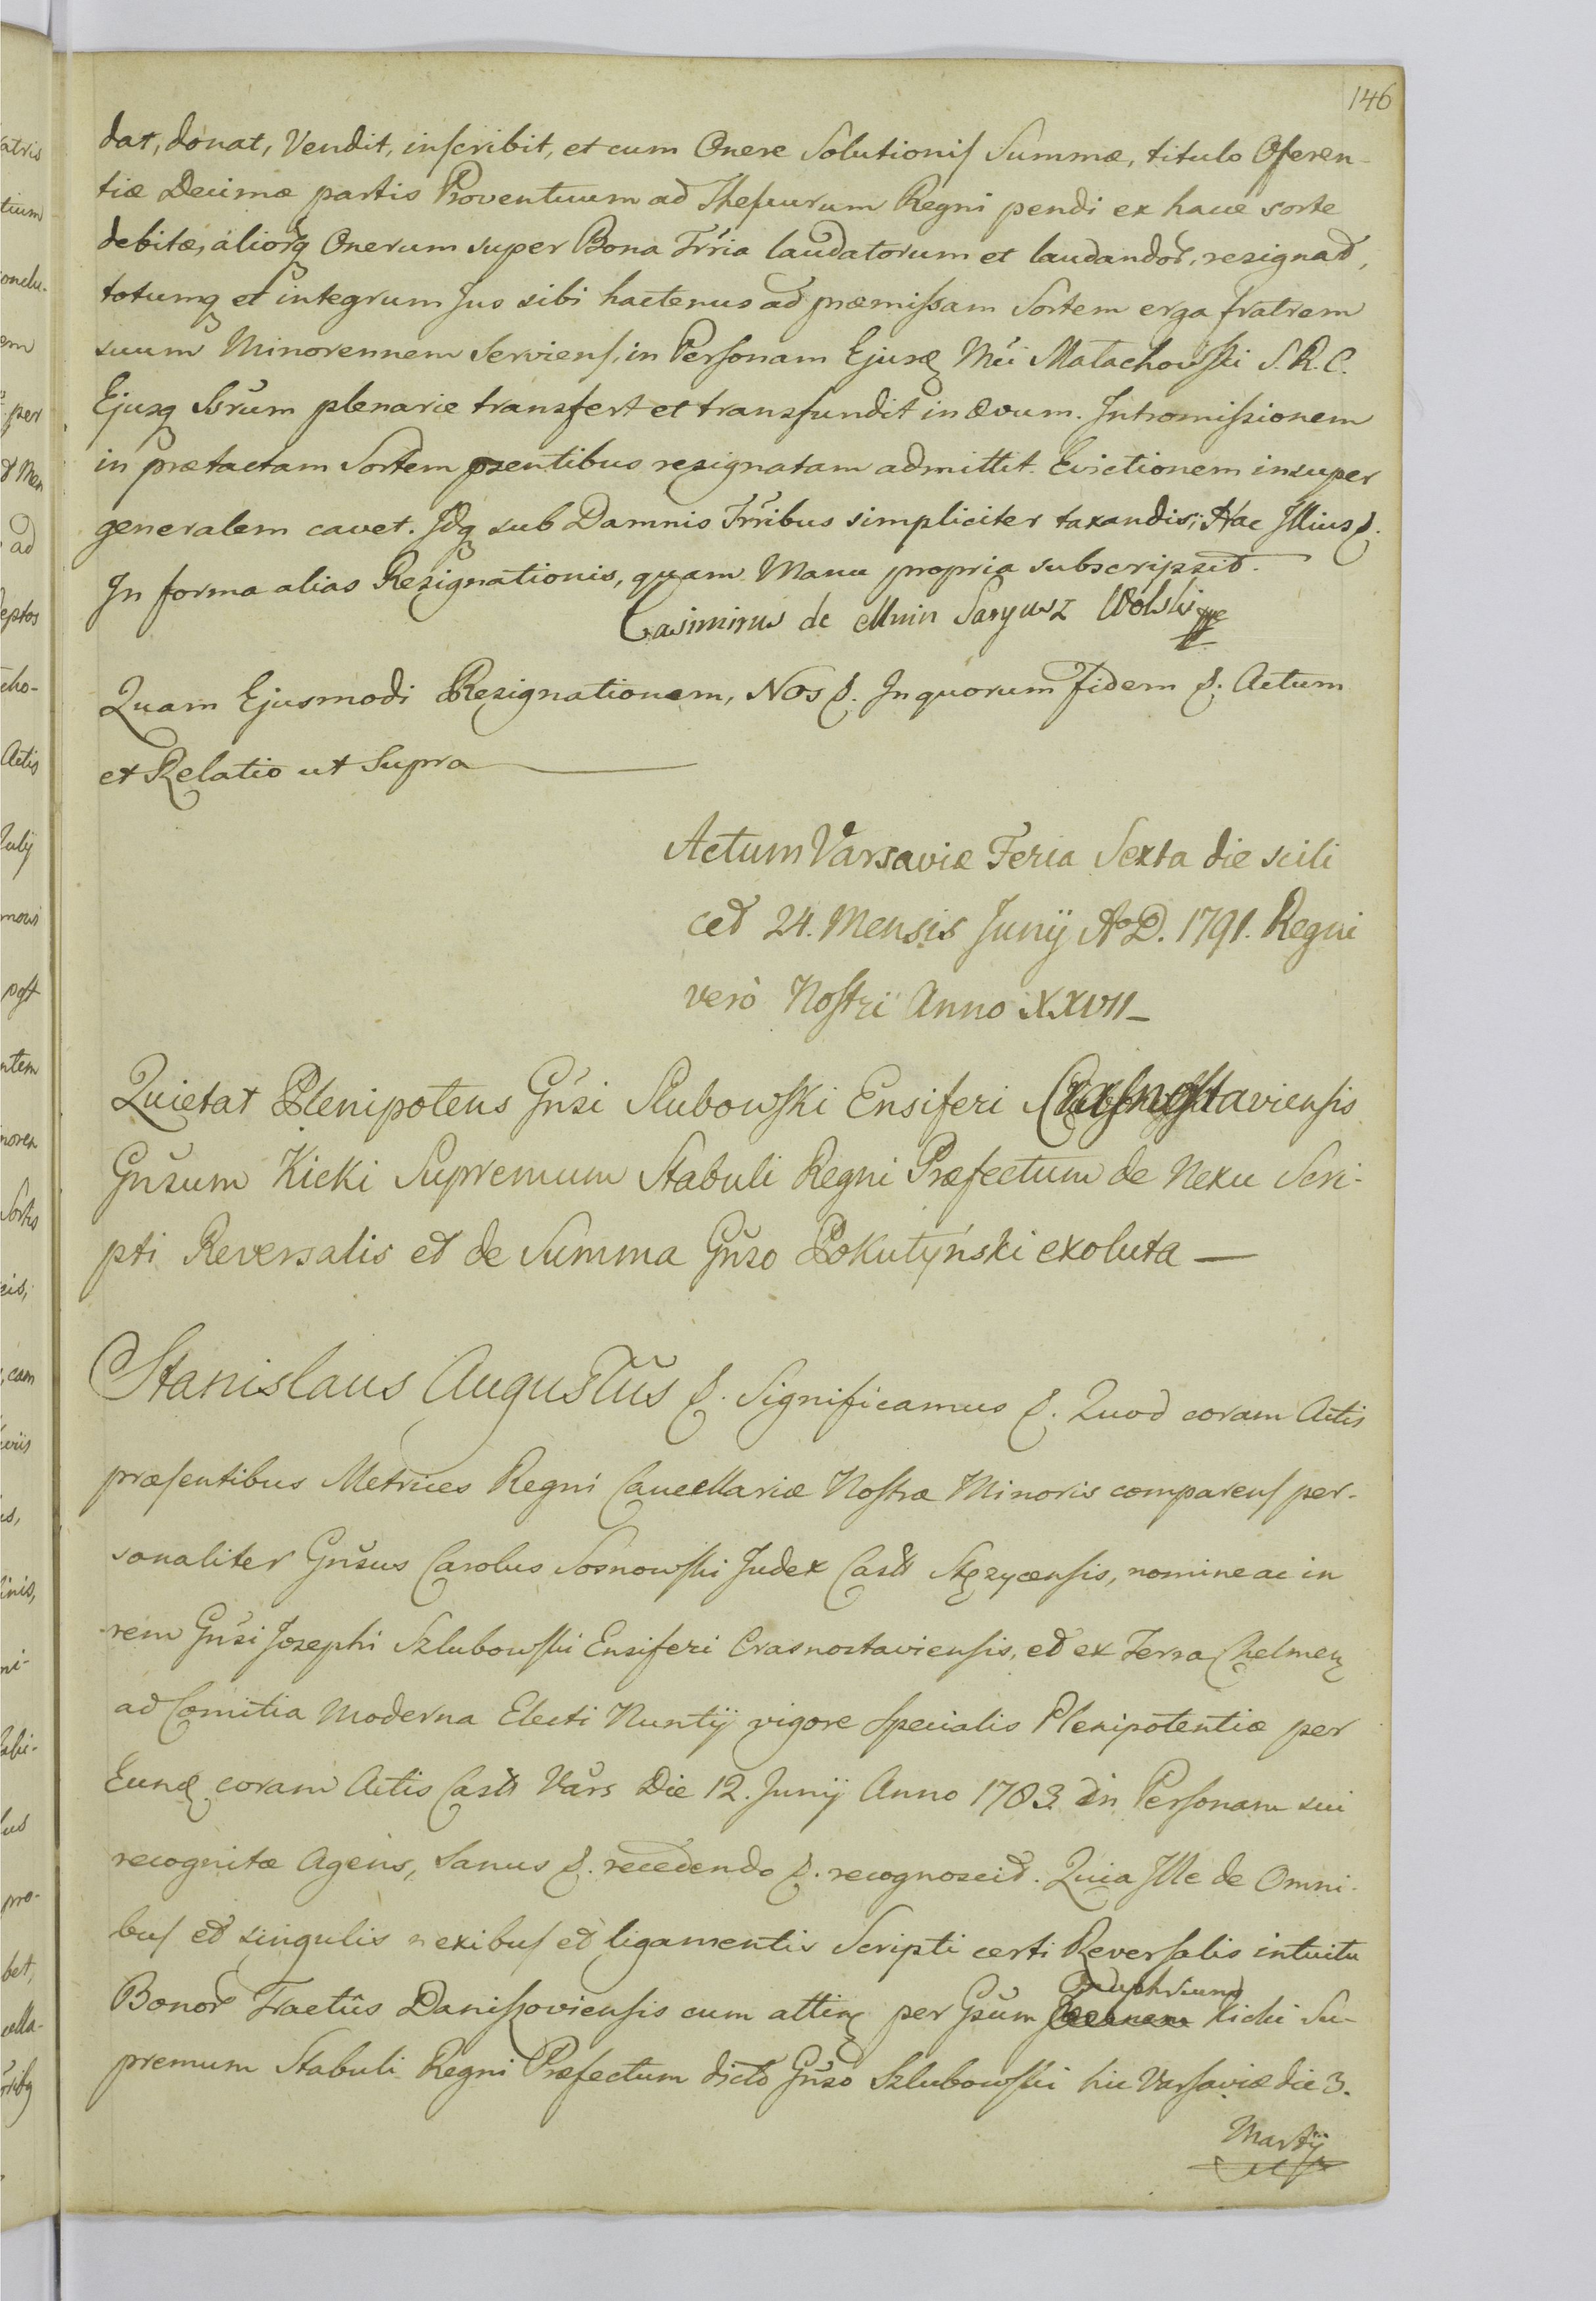 146
dat, donat, Vendit, inscribit, et cum Onere Solutionis Summæ, titulo Oferen-
tiæ Decimæ partis Proventuum ad Thesaurum Regni pendi ex hacce sorte
debitæ, aliorq Onerum super Bona Trria laudatorum et laudandor, resignat,
totumq et integrum Jus sibi hactenus ad præmissam Sortem erga fratrem
suum Minorennem Serviens, in Personam Ejusd Mci Małachowski S. R. C.
Ejusq Ssrum plenarie transfert et transfundit in ævum. Intromissionem
in prætactam Sortem pzentibus resignatam admittit. Evictionem insuper
generalem cavet. Idq sub Damnis Trribus simpliciter taxandis; Hac Illius &.
In forma alias Resignationis, quam Manu propria subscripsit.
Casimirus de Mnin Saryusz Wolski mpp
Quam Ejusmodi Resignationem, Nos &. In quorum fidem &. Actum
et Relatio ut Supra
Actum Varsaviæ Feria Sexta die scili
cet 24. Mensis Junij Ao D. 1791. Regni
verò Nostri Anno XXVII_
Quietat Plenipotens Gnsi Słubowski Ensiferi Crasnostaviensis
Gnsum Kicki Supremum Stabuli Regni Præfectum de Nexu Scri-
pti Reversalis et de Summa Gnso Pokutyński exoluta —
Stanislaus Augustus &. Significamus &. Quod coram Actis
præsentibus Metrices Regni Cancellariæ Nostræ Minoris comparens per-
sonaliter Gnsus Carolus Sosnowski Judex Castr Stęzycensis, nomine ac in
rem Gnsi Josephi Szlubowski Ensiferi Crasnostaviensis, et ex Terra Chelmen
ad Comitia Moderna Electi Nuntij vigore specialis Plenipotentiæ per
Eund coram Actis Castr Vars Die 12. Junij Anno 1783 in Personam sui
recognitæ Agens, Sanus &. recedendo &. recognoscit. Quia Ille de Omni-
bus et singulis nexibus et ligamentis Scripti certi Reversalis intuitu
Bonor Tractûs Daniszoviensis cum attin per Gsum Onuphrium Kicki Su-
premum Stabuli Regni Præfectum dicto Gnso Szlubowski hic Varsaviæ die 3.
Martij